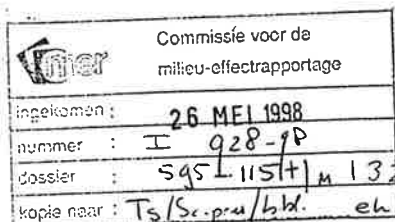 mer
Commissie voor de
milieu-effectrapportage
ingekomen : 26 MEI 1998
nummer : I 928-98
dossier : 595-115+/M 132
kopie naar : Ts/Sc.pm/bbl. eh